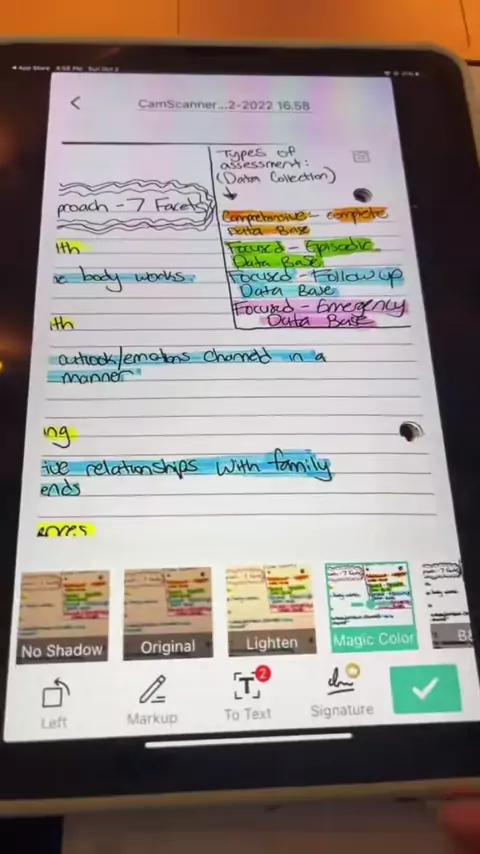 App Store 4:58 PM Sun Oct 2
CamScanner...2-2022 16.58
Types of
assessment:
(Data Collection)
proach - 7 Facets
Comprehensive - complete
Data Base
lth
Focused - Episodic
Data Base
e body works.
Focused - Follow up
Data Base
Focused - Emergency
Data Base
th
outlook/emotions channeled in a
manner
ing
ive relationships with family
ends
No Shadow
Original
Lighten
Magic Color
B&
Left
Markup
To Text
2
Signature